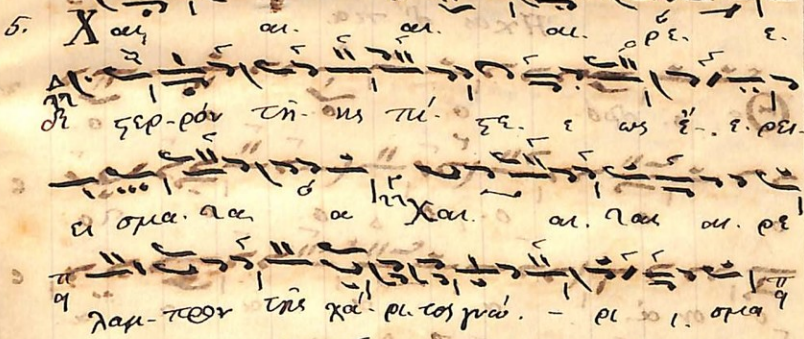 5. Χαι αι. αι. αι. ρε. ε.
στερ-ρόν τῆ-ης πί- στε. ε ως ἔ-. ε. ρει-
ει σμα. Χαι. αι. αι. ρε
λαμ-προν τῆς χά-ρι-τος γνώ. - ρι ι. σμα